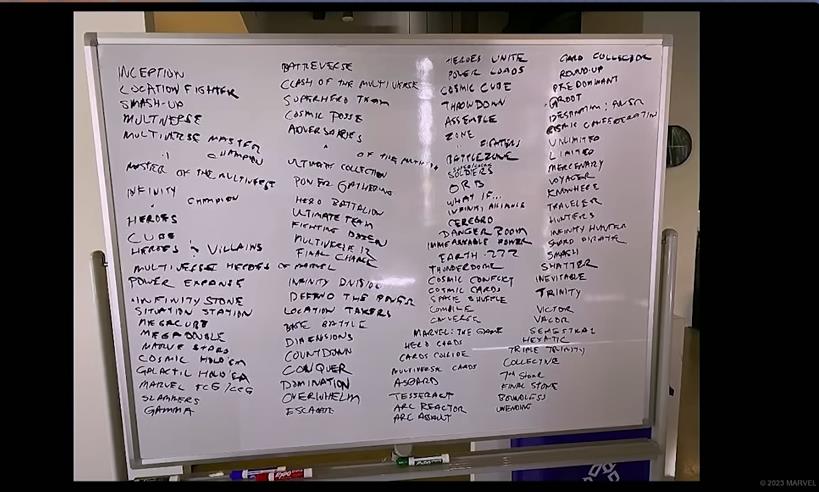 INCEPTION
LOCATION FIGHTER
SMASH-UP
MULTIVERSE
MULTIVERSE MASTER
" CHAMPION
MASTER OF THE MULTIVERSE
INFINITY
" CHAMPION
HEROES
CUBE
HEROES & VILLAINS
MULTIVERSE HEROES OF MARVEL
POWER EXPANSE
INFINITY STONE
SITUATION STATION
MEGACUBE
MEGADOUBLE
MARVEL
COSMIC HOLD'EM
GALACTIC HOLD'EM
MARVEL TCG/CCG
SLAMMERS
GAMMA
BATTLEVERSE
CLASH OF THE MULTIVERSE
SUPERHERO TEAM
COSMIC POSSE
ADVERSARIES
" OF THE
ULTIMATE COLLECTION
POWER GATHERING
HERO BATTALION
ULTIMATE TEAM
FIGHTING DOZEN
MULTIVERSE 12
FINAL CHARGE
INFINITY DIVISION
DEFEND THE POWER
LOCATION TAKERS
BASE BATTLE
DIMENSIONS
COUNTDOWN
CONQUER
DOMINATION
OVERWHELM
ESCALATE
HEROES UNITE
POWER LOADS
COSMIC CUBE
THROWDOWN
ASSEMBLE
ZONE
" FIGHTERS
BATTLEZONE
SOLDIERS
ORB
WHAT IF...
INFINITY ALLIANCE
CEREBRO
DANGER ROOM
IMMEASURABLE POWER
EARTH-777
THUNDERDOME
COSMIC CONFLICT
COSMIC CARDS
SPACE SHUFFLE
COMPILE
CONVERGE
MARVEL: THE GAME
HERO CARDS
CARDS COLLIDE
MULTIVERSE CARDS
ASGARD
TESSERACT
ARC REACTOR
ARC ASSAULT
CARD COLLECTOR
ROUND-UP
PREDOMINANT
GROOT
DESTINATION:
COSMIC CONFEDERATION
UNLIMITED
LIMITED
MERCENARY
VOYAGER
KNOWHERE
TRAVELER
HUNTERS
INFINITY HUNTER
SWORD
SMASH
SHATTER
INEVITABLE
TRINITY
VICTOR
VALOR
SEMESTRAL
HEXATIC
TRIPLE TRINITY
COLLECTIVE
7th STONE
FINAL STONE
BOUNDLESS
UNENDING
© 2023 MARVEL